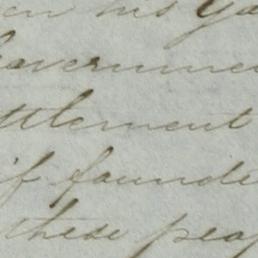 en his Ya
Governme
ttlement
if founde
these peop